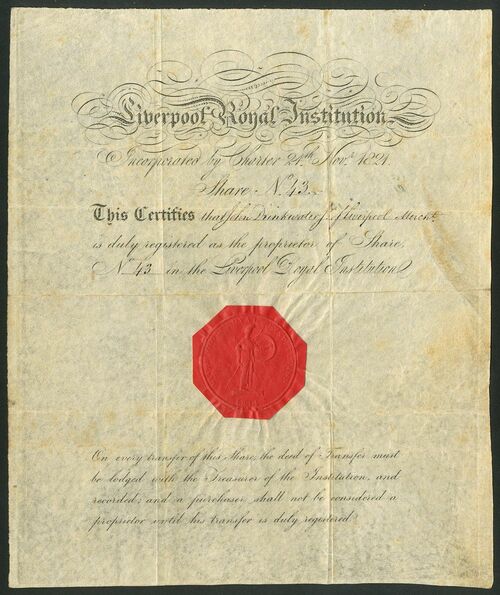 Liverpool Royal Institution
Incorporated by Charter 24th Novr. 1821.
Share No. 43
This Certifies that John Drinkwater Jr. of Liverpool Merch't
is duly registered as the proprietor of Share,
No. 43 in the Liverpool Royal Institution
On every transfer of this Share, the deed of Transfer must
be lodged with the Treasurer of the Institution, and
recorded; and a purchaser shall not be considered a
proprietor until his transfer is duly registered.